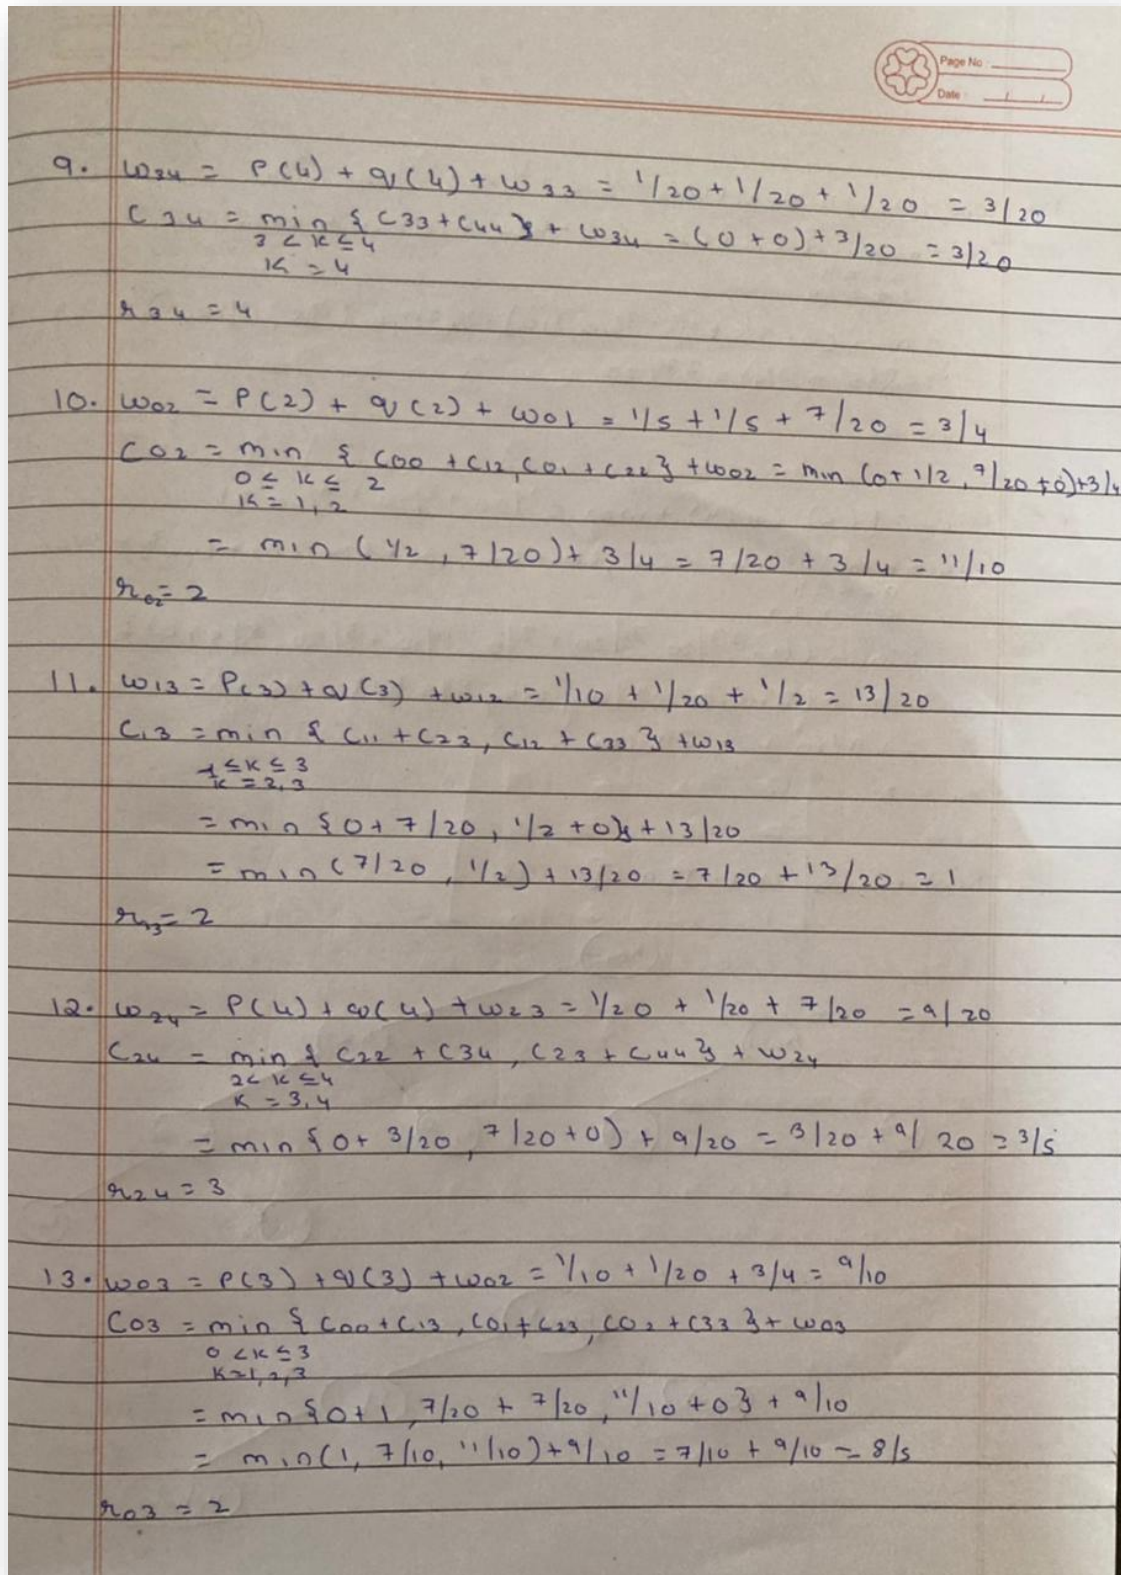 Page No :
Date : / /
9. w34 = P(4) + q(4) + w33 = 1/20 + 1/20 + 1/20 = 3/20
C34 = min { C33 + C44 } + w34 = (0 + 0) + 3/20 = 3/20
3 < K ≤ 4
K = 4
r34 = 4
10. w02 = P(2) + q(2) + w01 = 1/5 + 1/5 + 7/20 = 3/4
C02 = min { C00 + C12, C01 + C22 } + w02 = min (0 + 1/2, 7/20 + 0) + 3/4
0 ≤ K ≤ 2
K = 1, 2
= min (1/2, 7/20) + 3/4 = 7/20 + 3/4 = 11/10
r02 = 2
11. w13 = P(3) + q(3) + w12 = 1/10 + 1/20 + 1/2 = 13/20
C13 = min { C11 + C23, C12 + C33 } + w13
1 ≤ K ≤ 3
K = 2, 3
= min { 0 + 7/20, 1/2 + 0 } + 13/20
= min (7/20, 1/2) + 13/20 = 7/20 + 13/20 = 1
r13 = 2
12. w24 = P(4) + q(4) + w23 = 1/20 + 1/20 + 7/20 = 9/20
C24 = min { C22 + C34, C23 + C44 } + w24
2 < K ≤ 4
K = 3, 4
= min { 0 + 3/20, 7/20 + 0 ) + 9/20 = 3/20 + 9/20 = 3/5
r24 = 3
13. w03 = P(3) + q(3) + w02 = 1/10 + 1/20 + 3/4 = 9/10
C03 = min { C00 + C13, C01 + C23, C02 + C33 } + w03
0 < K ≤ 3
K = 1, 2, 3
= min { 0 + 1, 7/20 + 7/20, 11/10 + 0 } + 9/10
= min (1, 7/10, 11/10) + 9/10 = 7/10 + 9/10 = 8/5
r03 = 2